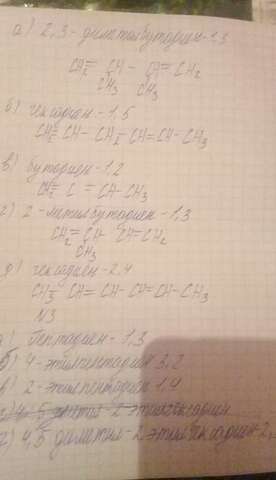 а) 2,3-диметилбутадиен-1,3
CH₂= CH - CH = CH₂
CH₃ CH₃
б) гексадиен-1,5
CH₂=CH- CH₂-CH=CH-CH₃
в) бутадиен-1,2
CH₂= C = CH-CH₃
г) 2-метилбутадиен-1,3
CH₂=CH CH=CH₂
CH₃
д) гексадиен-2,4
CH₃ CH= CH- CH=CH-CH₃
N3
а) Гептадиен-1,3
б) 4-этилпентадиен 3,2
в) 2-этилпентадиен 1,4
г) 4,5 диметил-2 этилгексадиен 2,